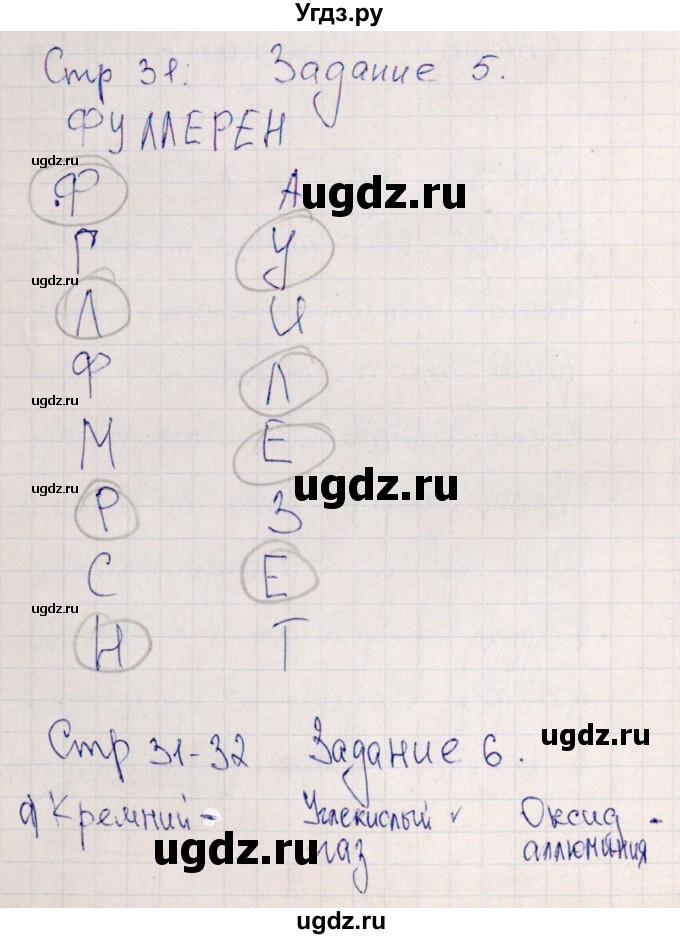 Угдз.ру
Стр 31: Задание 5.
ФУЛЛЕРЕН
ugdz.ru
Ф А ugdz.ru
Г У
ugdz.ru
Л И
Ф Л
ugdz.ru
М Е
ugdz.ru ugdz.ru
Р З
С Е
ugdz.ru
Н Т
Стр 31-32 Задание 6. ugdz.ru
а) Кремний - Углекислый ✓ Оксид -
ugdz.ru газ аллюминия
ugdz.ru